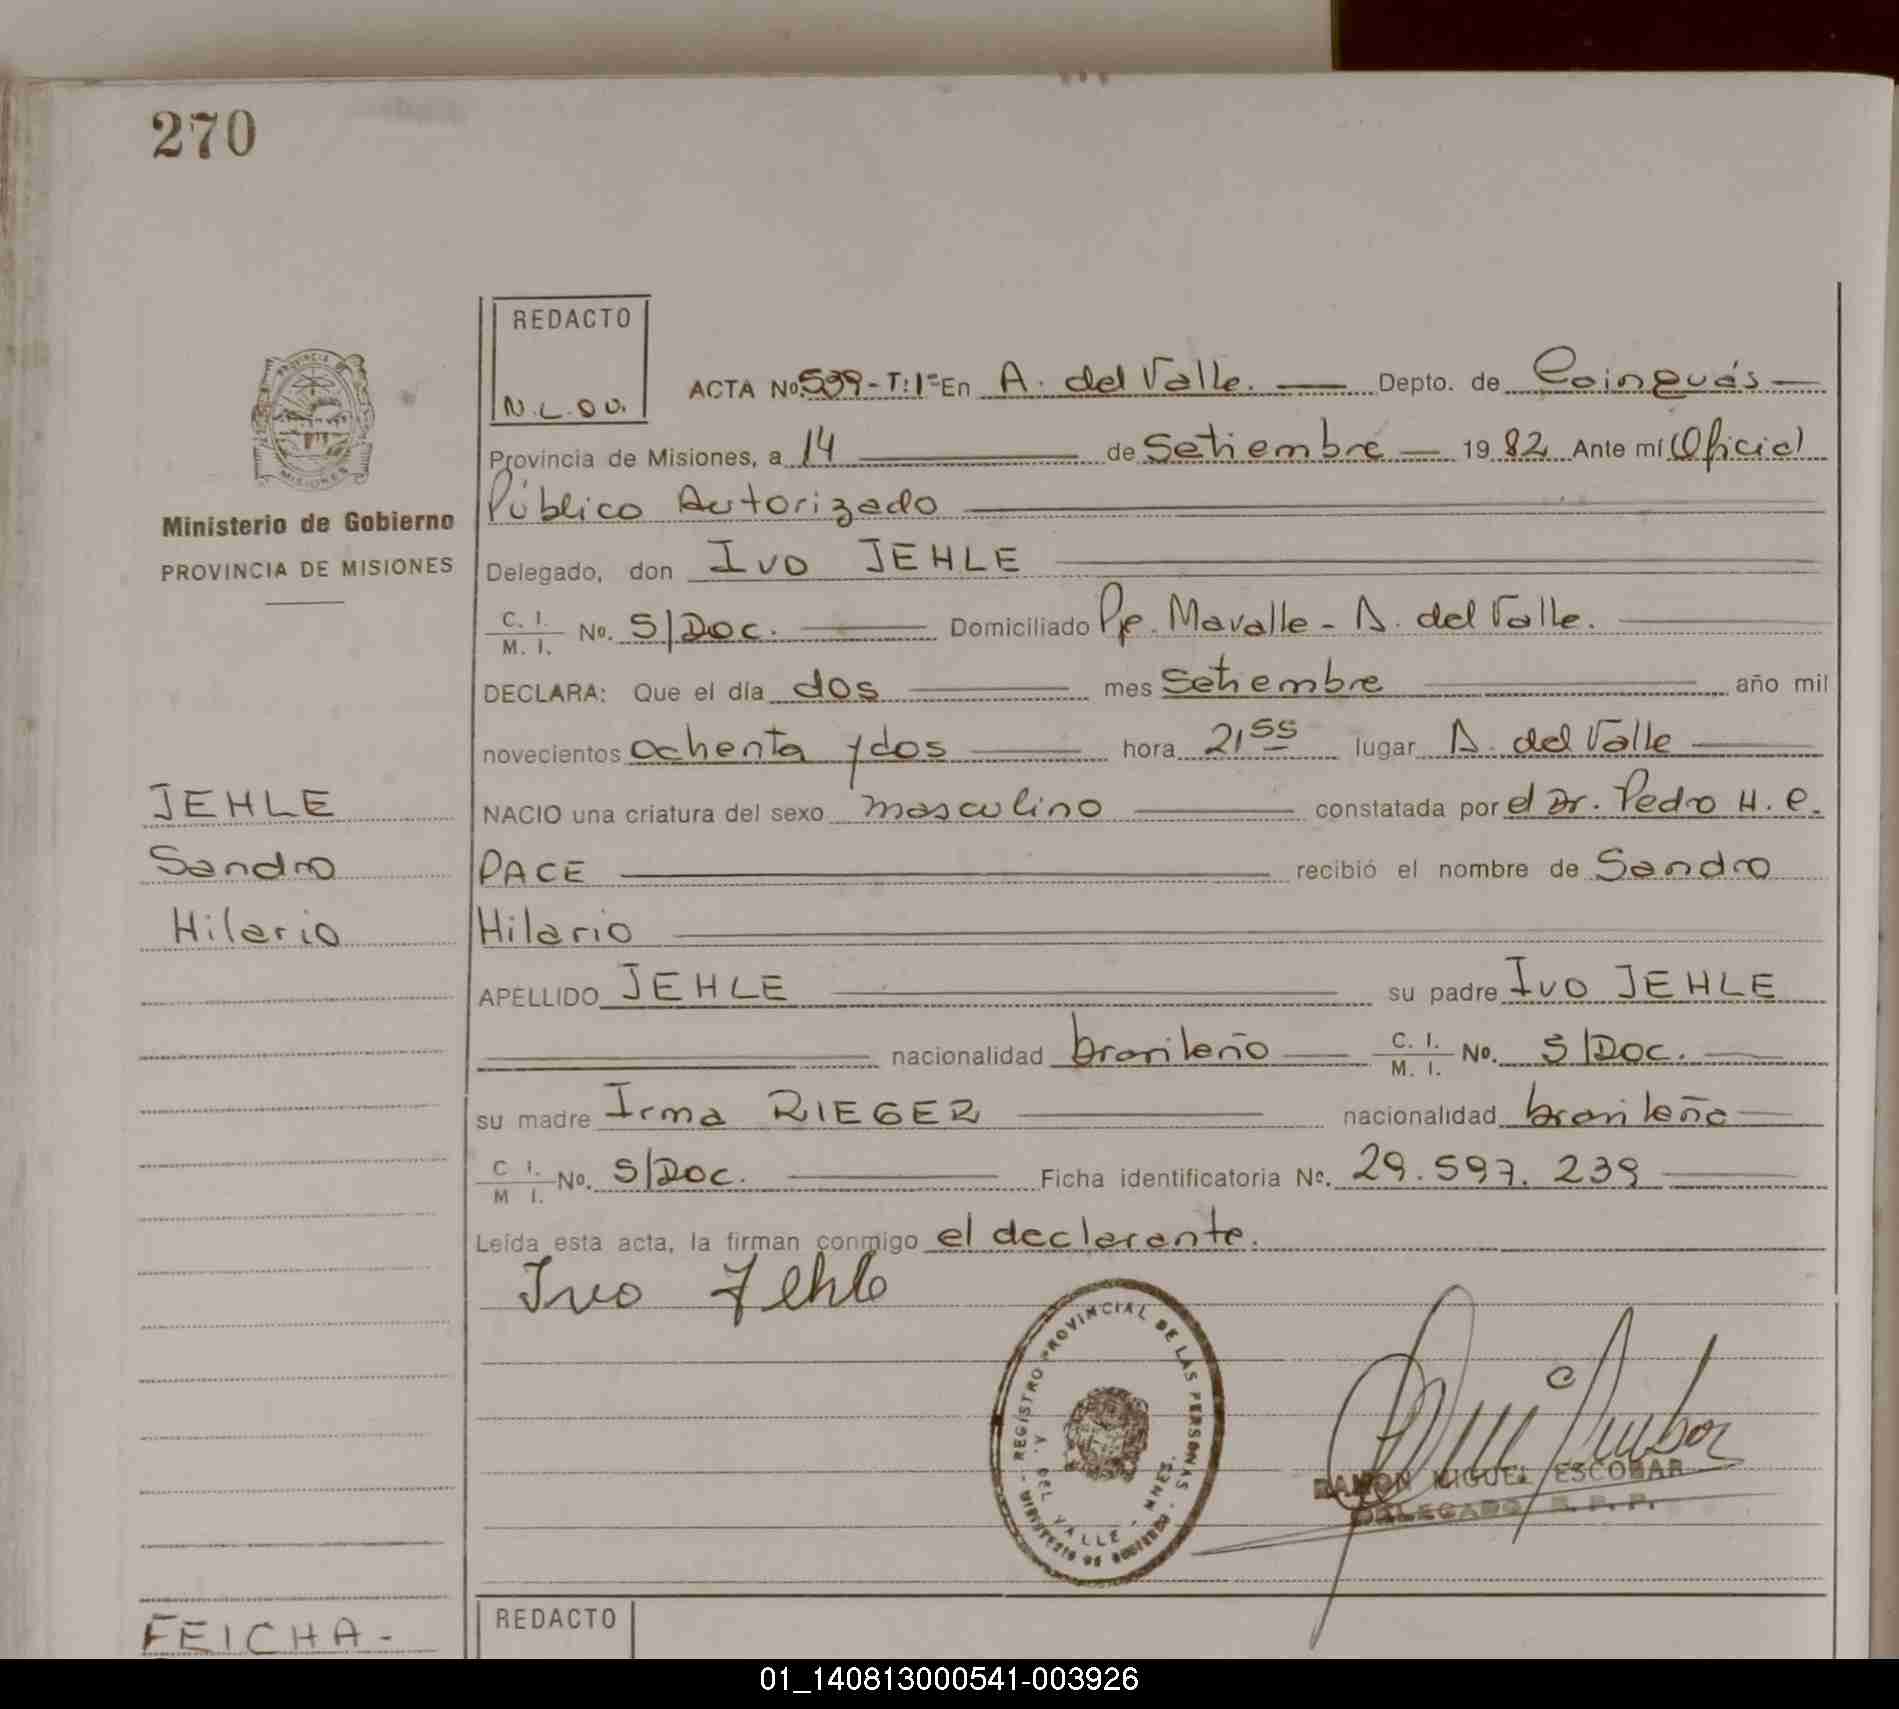 270
REDACTO
N.L.OU.
PROVINCIA DE
MISIONES
Ministerio de Gobierno
PROVINCIA DE MISIONES
ACTA No. 539 - T: 1º En A. del Valle. Depto. de Cainguás
Provincia de Misiones, a 14 de Setiembre 1982 Ante mí Oficial
Público Autorizado
Delegado, don Ivo JEHLE
C. I. M. I. No. S/Doc. Domiciliado Pje. Mavalle - A. del Valle.
DECLARA: Que el día dos mes Setiembre año mil
novecientos ochenta y dos hora 21 55 lugar A. del Valle
NACIO una criatura del sexo masculino constatada por el Dr. Pedro H. C.
PACE recibió el nombre de Sandro
Hilario
APELLIDO JEHLE su padre Ivo JEHLE
nacionalidad brasileño C. I. M. I. No. S/Doc.
su madre Irma RIEGER nacionalidad brasileña
C I. M I. No. S/Doc. Ficha identificatoria No. 29.597.239
Leída esta acta, la firman conmigo el declarante.
Ivo Jehle
JEHLE
Sandro
Hilario
REGISTRO PROVINCIAL DE LAS PERSONAS
MINISTERIO DE GOBIERNO
A. DEL VALLE - MNES.
RAMON MIGUEL ESCOBAR
DELEGADO R. P. P.
FEICHA-
REDACTO
01_140813000541-003926